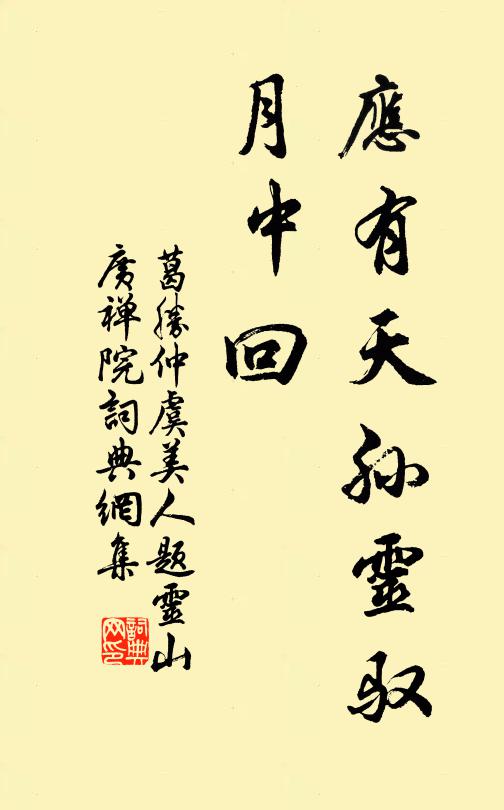 應有天孙靈驭
月中回
葛勝仲虞美人题靈山
廣禅院詞典網集
詞典
网印